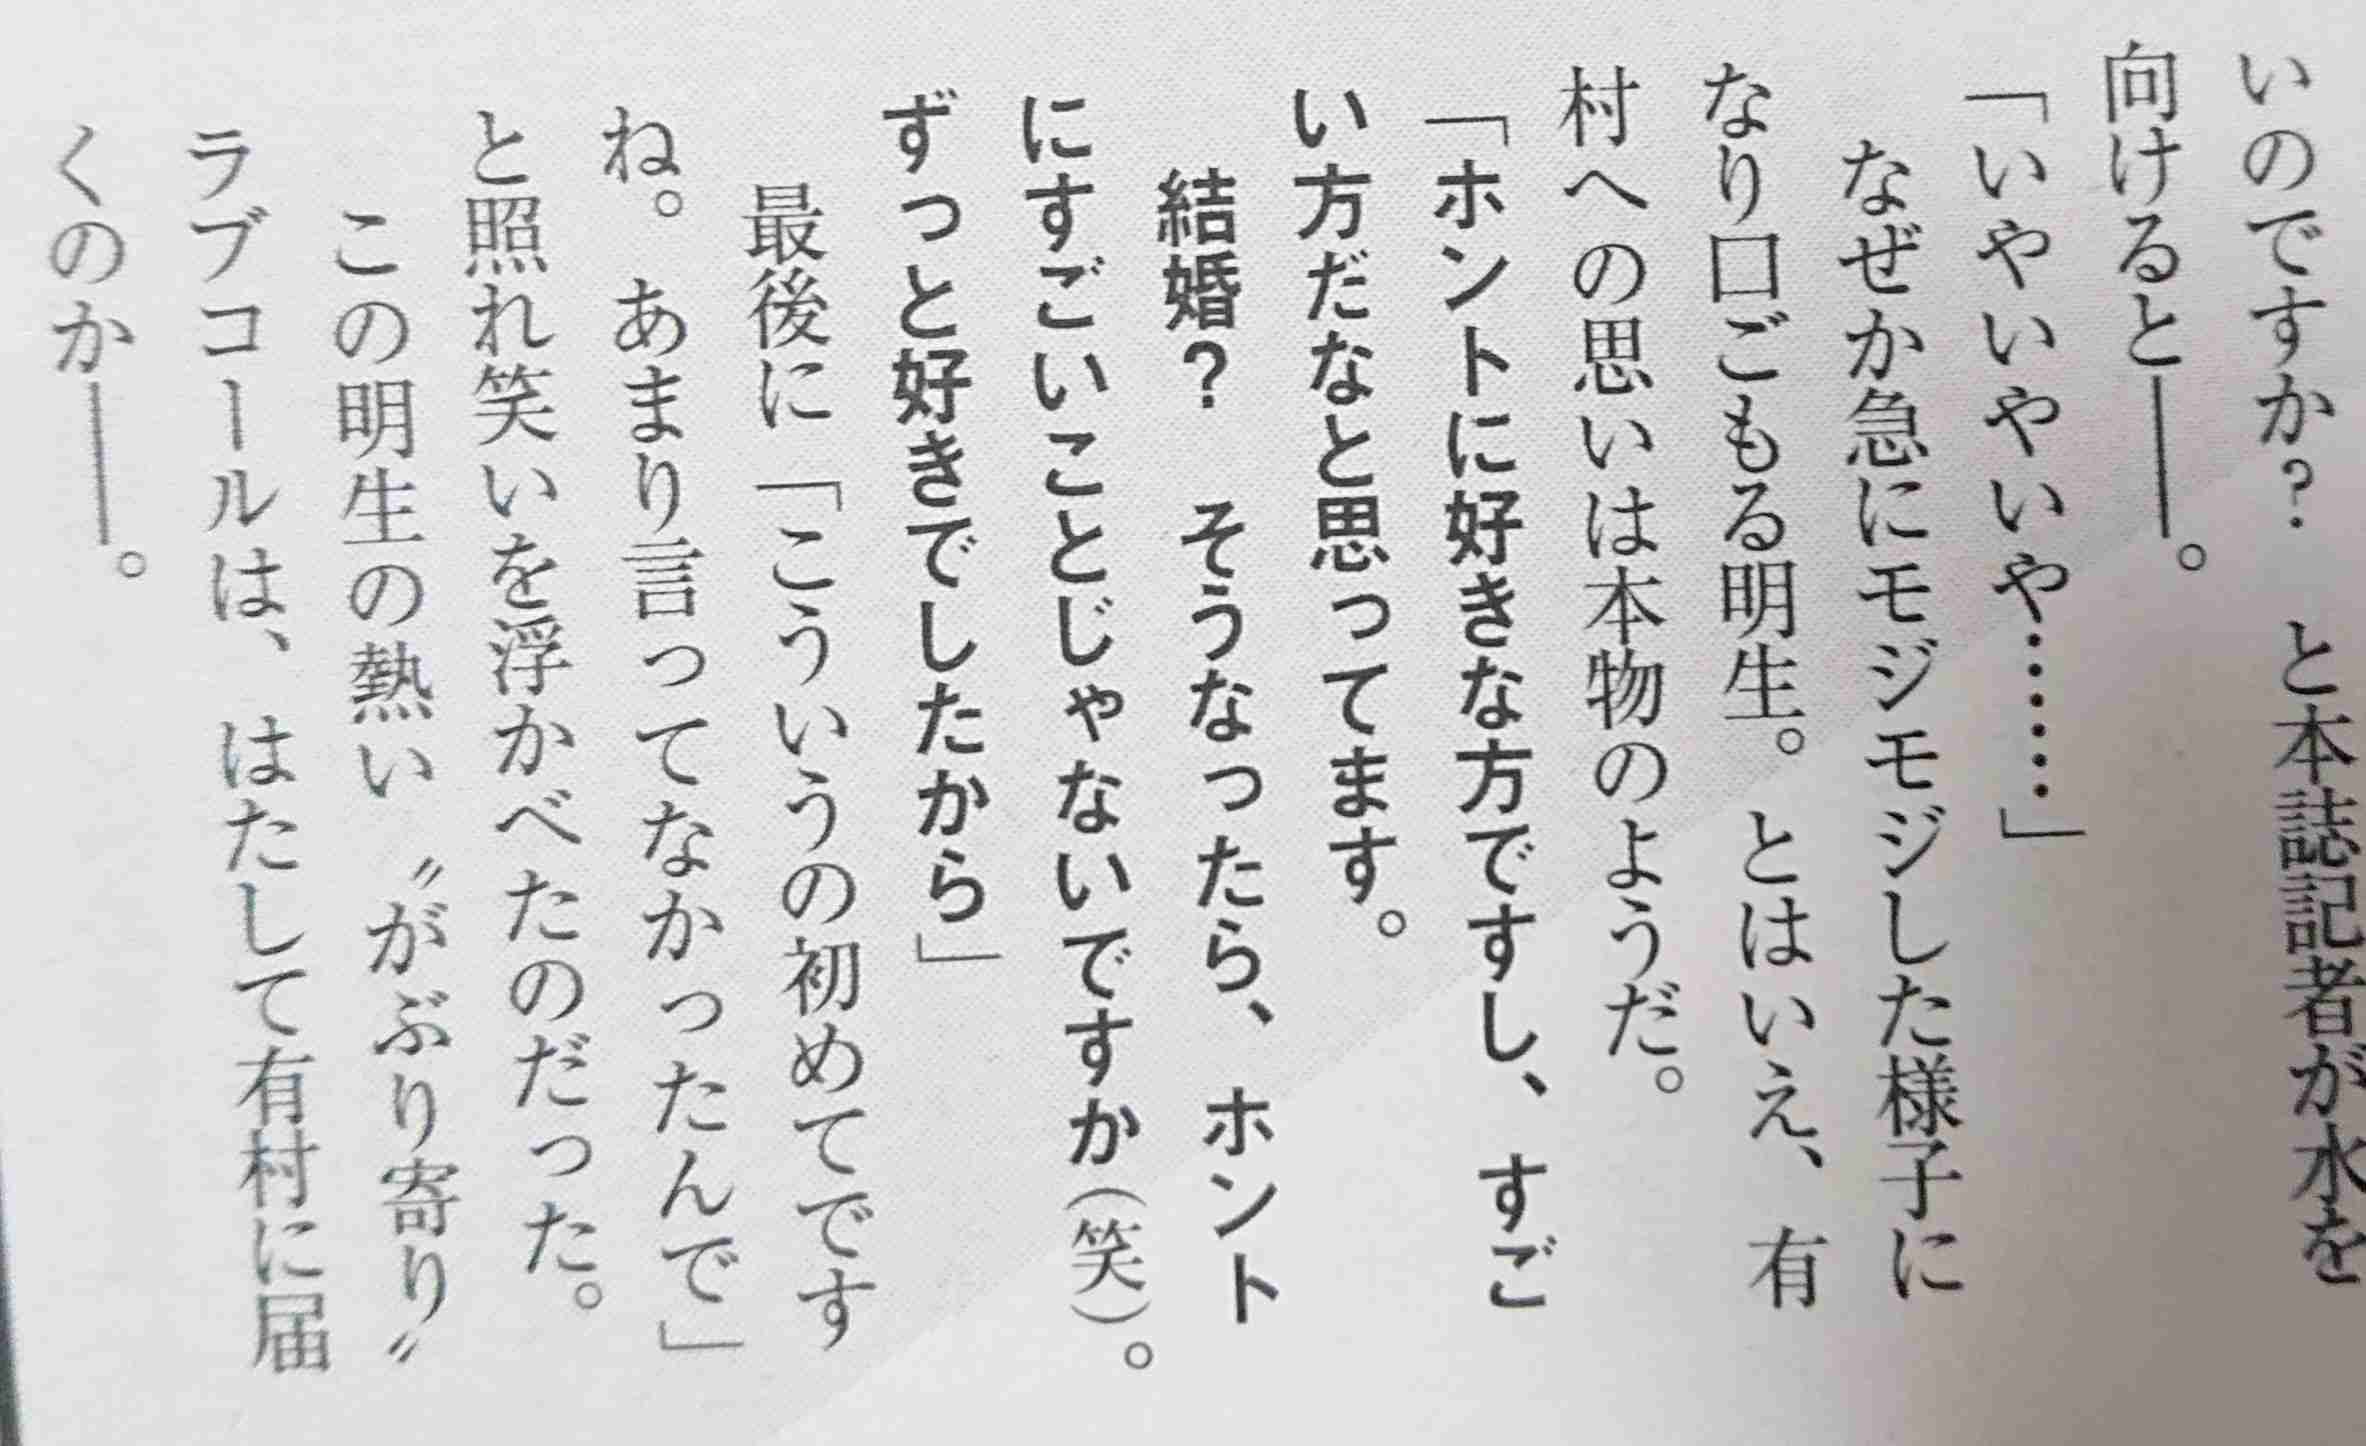 いのですか？　と本誌記者が水を
向けると――。
「いやいやいや……」
なぜか急にモジモジした様子に
なり口ごもる明生。とはいえ、有
村への思いは本物のようだ。
「ホントに好きな方ですし、すご
い方だなと思ってます。
結婚？　そうなったら、ホント
にすごいことじゃないですか（笑）。
ずっと好きでしたから」
最後に「こういうの初めてです
ね。あまり言ってなかったんで」
と照れ笑いを浮かべたのだった。
この明生の熱い〝がぶり寄り〟
ラブコールは、はたして有村に届
くのか――。